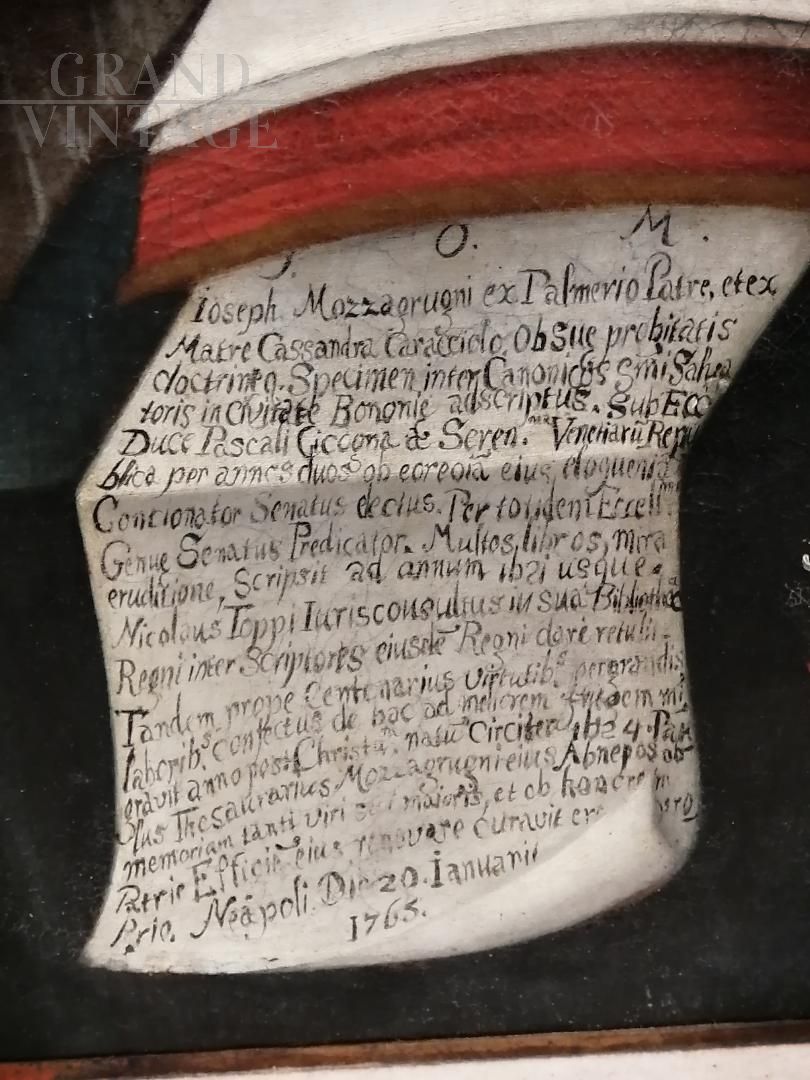 GRAND
VINTAGE
O. M.
Ioseph Mozzagrugni ex Palmerio Patre, et ex
Matre Cassandra Caracciolo, Ob Sue probitatis
doctrineq. Specimen inter Canonicos Smi Salva
toris in Civitate Bononie adscriptus. Sub Ecc
Duce Pascali Ciccona æ Seren.ma Venetiarũ Repu
blica per annos duos ob eius eloquentiã
Concionator Senatus electus. Per totidem Excell.mi
Genue Senatus Predicator. Multos libros, mira
eruditione, Scripsit ad annum 1621 usque.
Nicolaus Toppi Iurisconsultus in sua Bibliotheca
Regni inter Scriptores eiusdẽ Regni
Tandem prope Centenarius virtutibs pergrandis
laboribs. confectus de hac ad meliorem mi
gravit anno post Christum natum Circiter 1624. Pau
olus Thesaurarius Mozzagrugni eius Abnepos ob
memoriam tanti viri sui maioris, et ob honore
Patrie Efficiẽ eius renovare curavit
Prio. Neapoli Die 20. Ianuarii
1765.